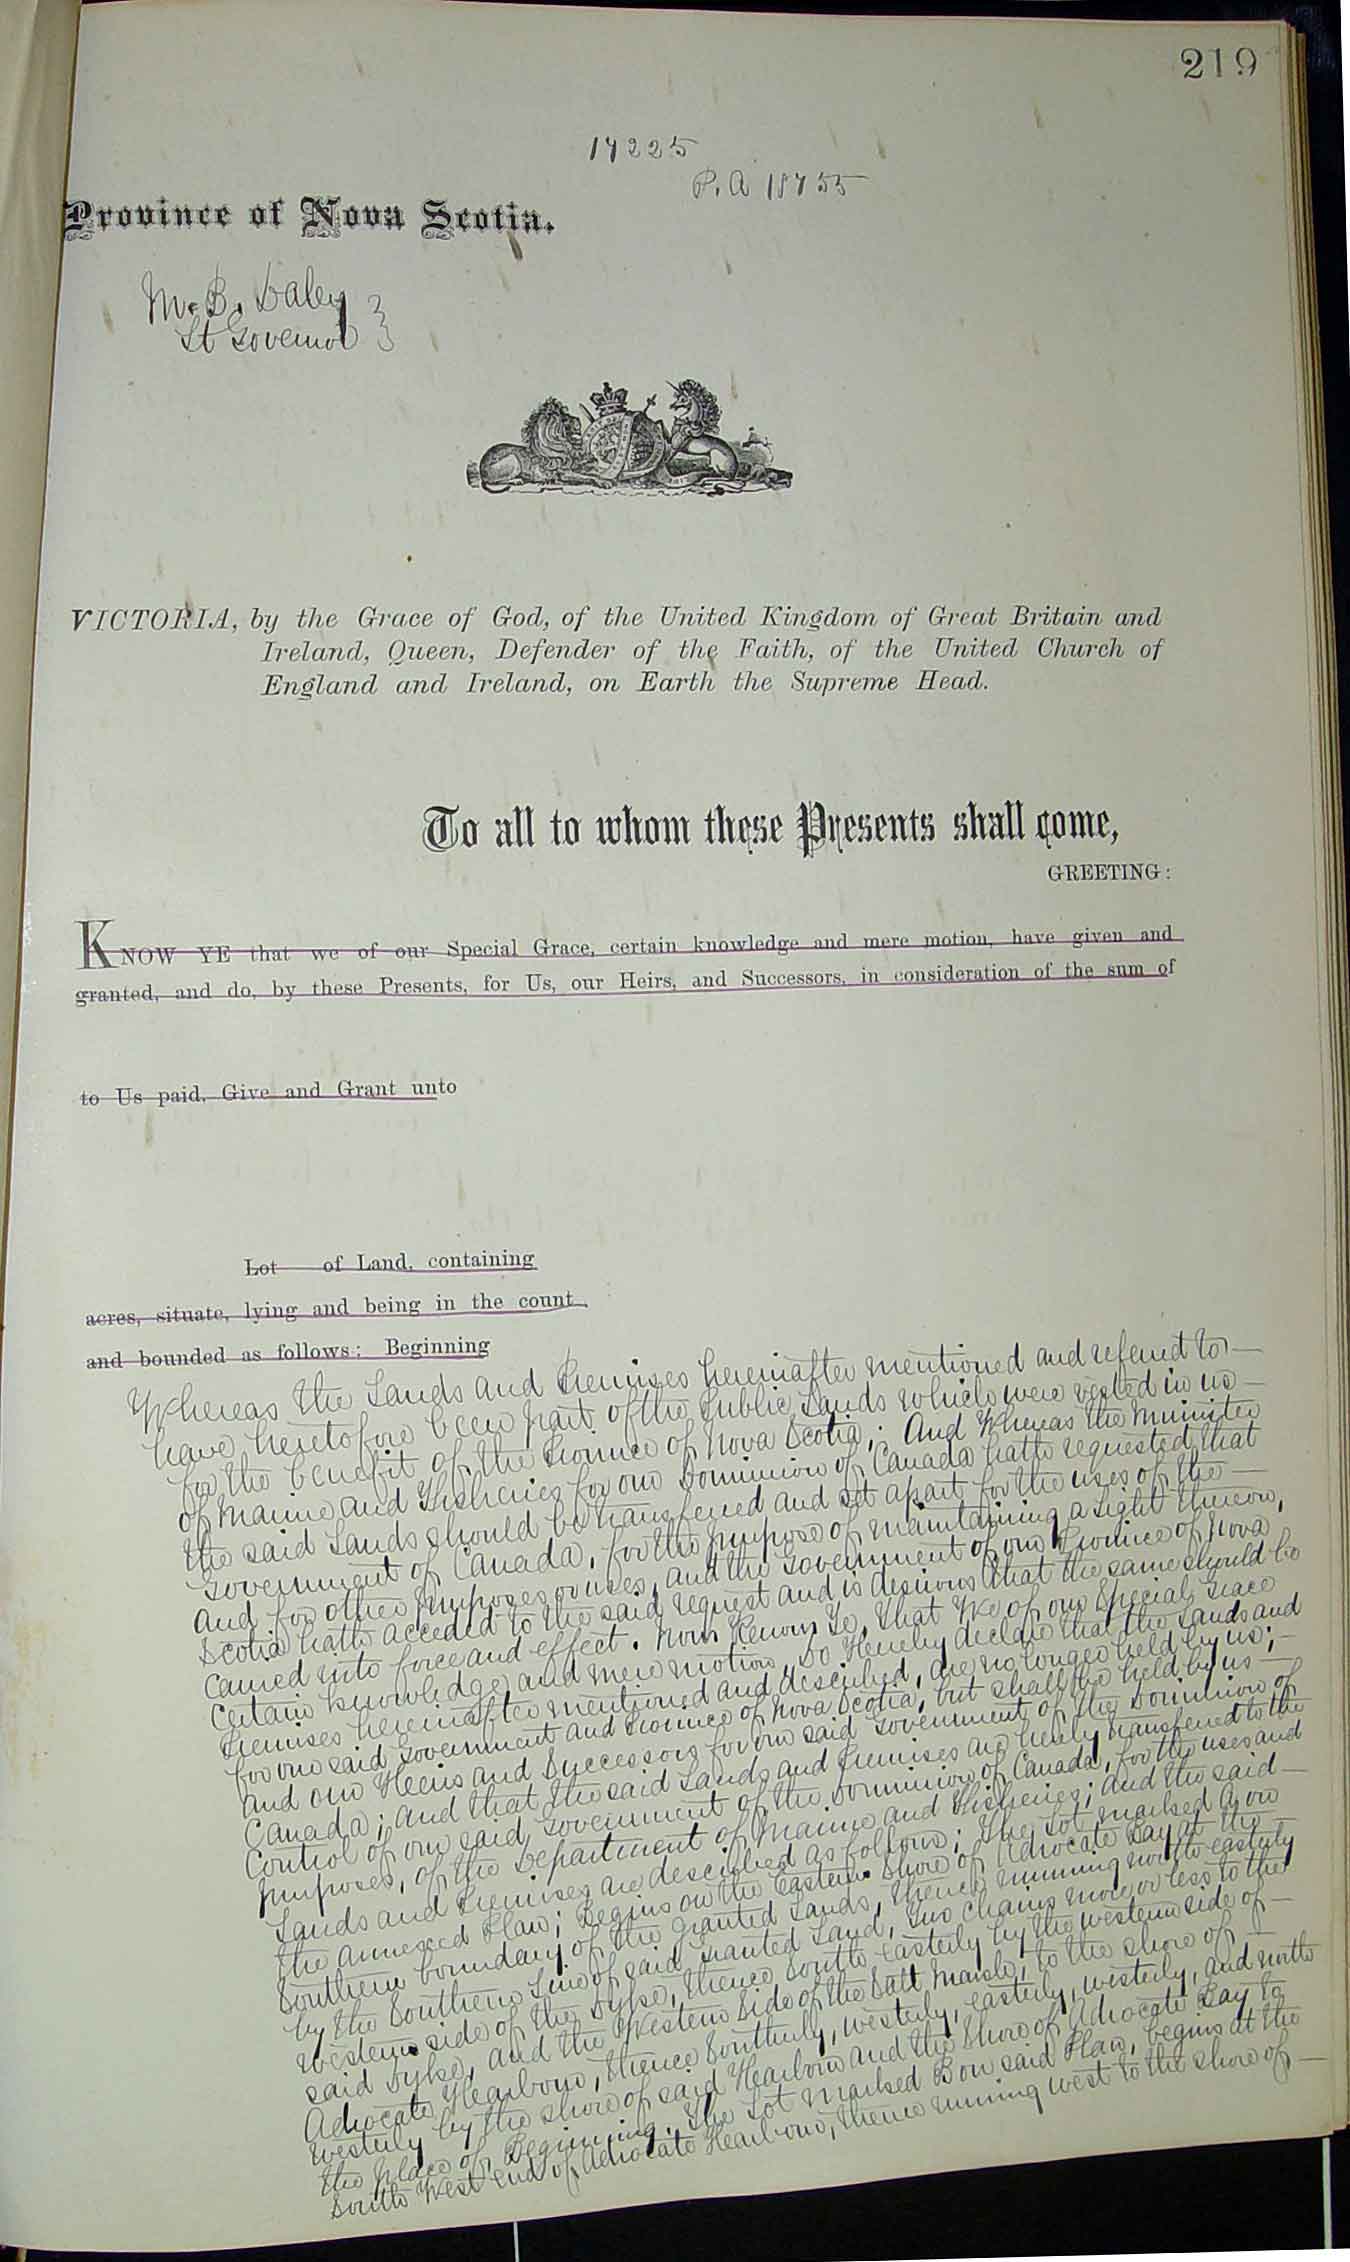 219
17225
P. A 18755
Province of Nova Scotia.
M. B. Daley
Lt Governor
VICTORIA, by the Grace of God, of the United Kingdom of Great Britain and
Ireland, Queen, Defender of the Faith, of the United Church of
England and Ireland, on Earth the Supreme Head.
To all to whom these Presents shall come,
GREETING:
KNOW YE that we of our Special Grace, certain knowledge and mere motion, have given and
granted, and do, by these Presents, for Us, our Heirs, and Successors, in consideration of the sum of
to Us paid, Give and Grant unto
Lot of Land, containing
acres, situate, lying and being in the count
and bounded as follows: Beginning
Whereas the Lands and Premises hereinafter mentioned and referred to
have heretofore been part of the Public Lands which were vested in us
for the benefit of the Province of Nova Scotia; And Whereas the Minister
of Marine and Fisheries for our Dominion of Canada hath requested that
the said Lands should be transferred and set apart for the uses of the
Government of Canada, for the purpose of maintaining a Light thereon,
and for other purposes or uses, and the Government of our Province of Nova
Scotia hath acceded to the said request and is desirous that the same should be
carried into force and effect. Now Know Ye, that We of our Special Grace
certain knowledge and mere motion, Do Hereby declare that the Lands and
Premises hereinafter mentioned and described, are no longer held by us,
for our said Government and Province of Nova Scotia, but shall be held by us
and our Heirs and Successors for our said Government of the Dominion of
Canada; and that the said Lands and Premises are hereby transferred to the
Control of our said Government of the Dominion of Canada, for the uses and
purposes, of the Department of Marine and Fisheries; and the said
Lands and Premises are described as follows; The Lot marked A on
the annexed Plan; Begins on the Eastern Shore of Advocate Bay at the
Southern boundary of the granted Lands, thence running north easterly
by the Southern Line of said granted Land, two chains more or less to the
western side of the Dyke, thence South easterly by the western side of
said Dyke, and the Western Side of the Salt Marsh, to the shore of
Advocate Hearbour, thence Southerly, westerly, easterly, westerly, and north
westerly by the shore of said Hearbour and the Shore of Advocate Bay to
the place of Beginning. The Lot marked B on said Plan, begins at the
South West end of Advocate Hearbour, thence running west to the shore of